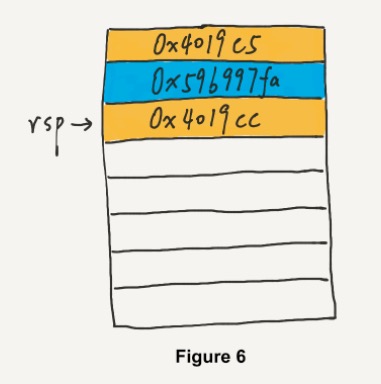 0x4019c5
0x596997fa
rsp → 0x4019cc
Figure 6